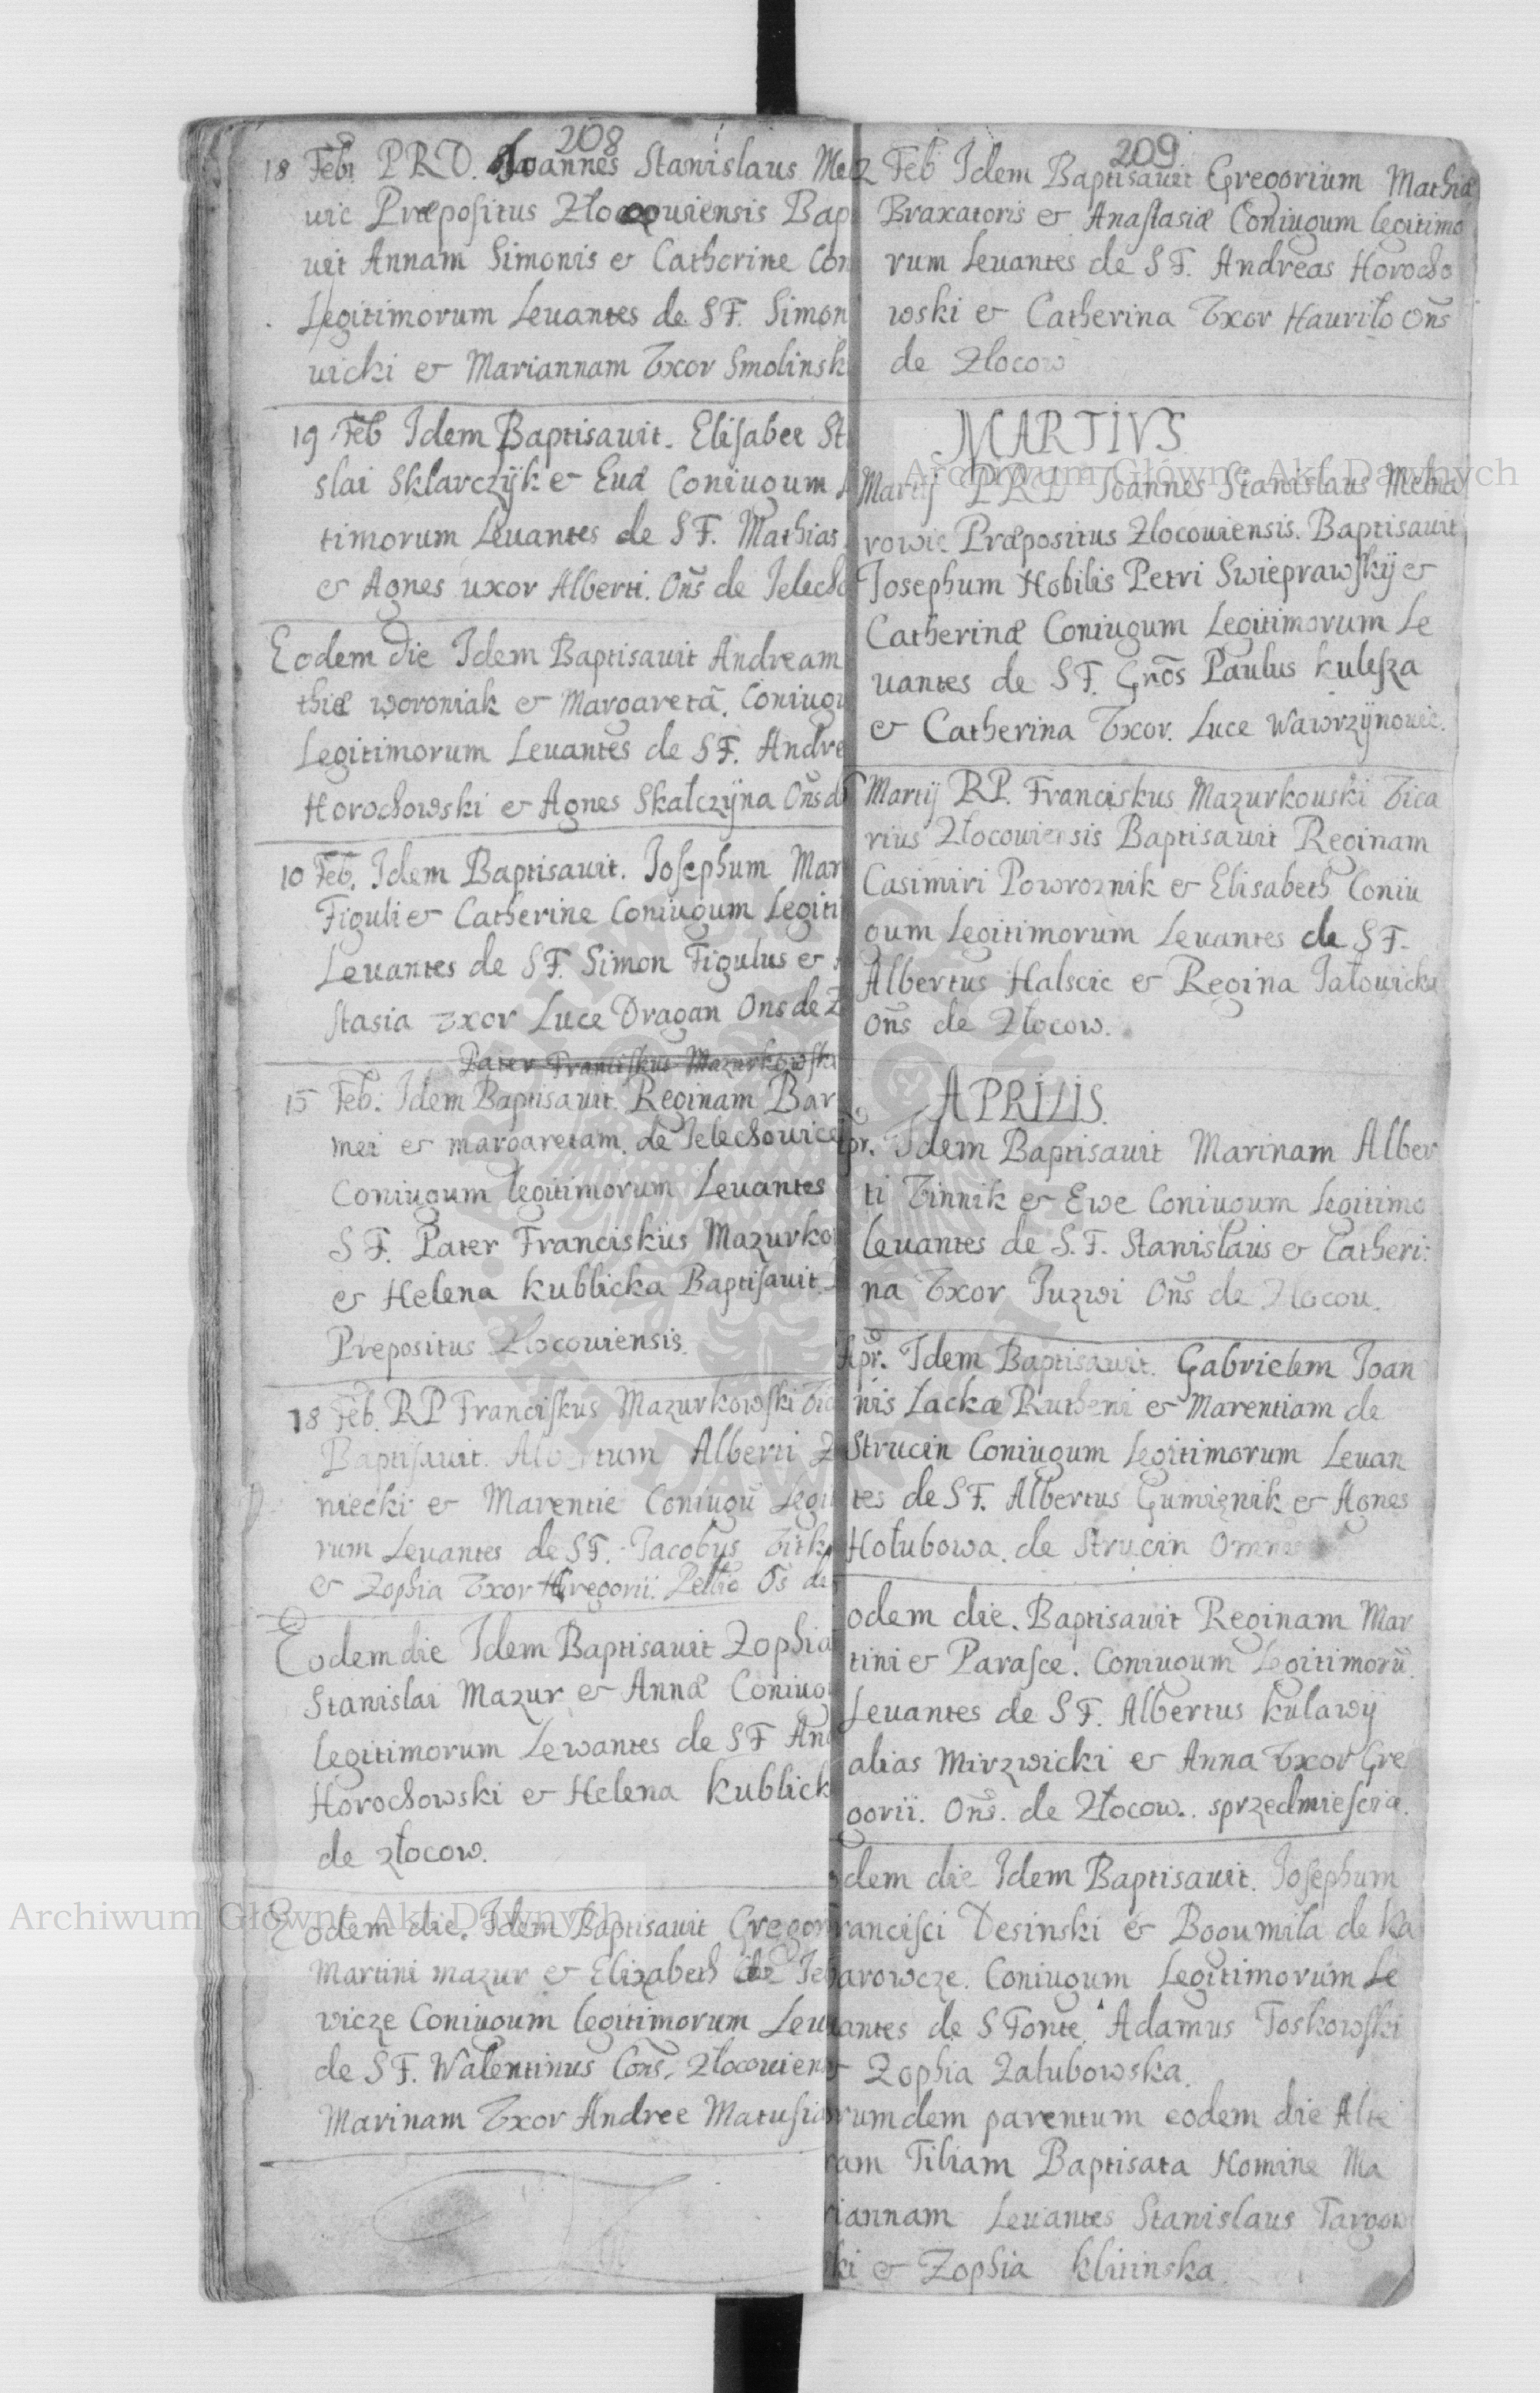 208
18 Feb: P R D. Joannes Stanislaus Mel
uic Præpositus Zlocouiensis Bap
uit Annam Simonis & Catherine Con
Legitimorum Leuantes de S F. Simon
uicki & Mariannam Vxor Smolinsk
19 Feb Idem Baptisauit. Elisabet St
slai Sklarczÿk & Euæ Coniugum
timorum Leuantes de S F. Mathias
& Agnes uxor Alberti. Oñs de Jelecho
Eodem die Idem Baptisauit Andream
thiæ woroniak & Margaretã. Coniugu
Legitimorum Leuantes de S F. Andre
Horochowski & Agnes Skałczÿna Oñs d
10 Feb. Idem Baptisauit. Iosephum Mar
Figuli & Catherine Coniugum Legiti
Leuantes de S F. Simon Figulus &
stasia Vxor Luce Dragan Ons de Z
Pater Franciskus Mazurkowski
15 Feb: Idem Baptisauit. Reginam Bar
mei & margaretam. de Jelechouice
Coniugum legitimorum Leuantes
S F. Pater Franciskus Mazurko
& Helena kublicka Baptisauit.
Prepositus Zlocouiensis.
18 Feb. RP Franciskus Mazurkowski Vic
Baptisauit. Albertum Alberti Z
niecki & Marentie Coniugũ Legit
rum Leuantes de S F. Jacobus
& Zophia Vxor Gregorii. Oš de
Eodem die Idem Baptisauit Zophia
Stanislai Mazur & Annæ Coniug
legitimorum Lewantes de S F And
Horochowski & Helena kublick
de złocow.
Eodem die. Idem Baptisauit Gregor
Martini mazur & Elizabeth de Jel
wicze Coniugum legitimorum Leu
de S F. Walentinus Coñs. Zlocouiens
Marinam Vxor Andree Matusia
209
2 Feb Idem Baptisauit Gregorium Mathiæ
Braxatoris & Anastasiæ Coniugum legitimo
rum Leuantes de S F. Andreas Horocho
wski & Catherina Vxor Hauriło Oñs
de Zlocow
MARTIVS
Martij P R D Joannes Stanislaus Melna
rowic Præpositus Zlocouiensis. Baptisauit
Josephum Nobilis Petri Swieprawskÿ &
Catherinæ Coniugum Legitimorum Le
uantes de S F. Gñōs Paulus kulesza
& Catherina Vxor. Luce Wawrzÿnouic.
Martij RP. Franciskus Mazurkouski Vica
rius Zlocouiensis Baptisauit Reginam
Casimiri Powroznik & Elisabeth Coniu
gum Legitimorum Leuantes de S F.
Albertus Halscic & Regina Jałouicka
Oñs de Złocow.
APRILIS.
pr. Idem Baptisauit Marinam Alber
ti Vinnik & Ewe Coniugum Legitimo
leuantes de S. F. Stanislaus & Catheri:
na Vxor Juzwi Oñs de Zlocou.
Apr. Idem Baptisauit. Gabrielem Joan
nis Lackæ Rutheni & Marentiam de
Strucin Coniugum Legitimorum Leuan
tes de S F. Albertus Gumięnik & Agnes
Hołubowa. de Strucin
odem die. Baptisauit Reginam Mar
tini & Parasce. Coniugum Legitimorũ.
Leuantes de S F. Albertus kulawÿ
alias Mirzwicki & Anna Vxor Gre
gorii. Oñs. de Złocow. sprzedmiescia.
odem die Idem Baptisauit. Josephum
rancisci Desinski & Bogumila de Ka
arowcze. Coniugum Legitimorum Le
antes de S Fonte. Adamus Toskowski
& Zophia Zalubowska.
rumdem parentum eodem die Alte
ram Filiam Baptisata Nomine Ma
riannam Leuantes Stanislaus Targow
ki & Zophia klitinska.
Archiwum Główne Akt Dawnych
Archiwum Główne Akt Dawnych
ARCHIWUM GŁÓWNE AKT DAWNYCH